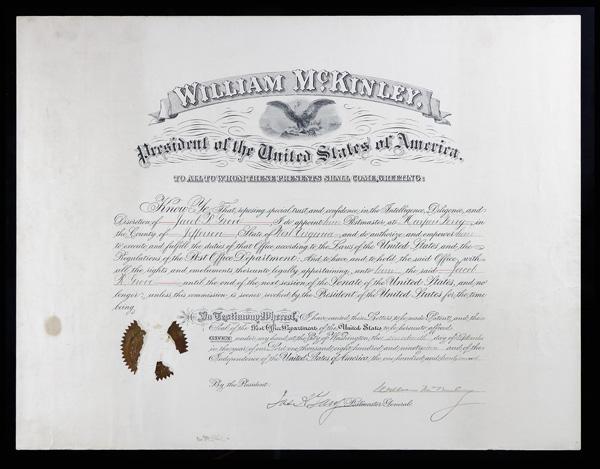 WILLIAM McKINLEY,
President of the United States of America,
TO ALL TO WHOM THESE PRESENTS SHALL COME, GREETING:
Know Ye, That, reposing special trust and confidence in the Intelligence, Diligence, and
Discretion of Jacob I do appoint him Postmaster at Harpers Ferry in
the County of Jefferson State of West Virginia and do authorize and empower him
to execute and fulfill the duties of that Office according to the Laws of the United States, and the
Regulations of the Post Office Department: And, to have and to hold, the said Office, with
all the rights and emoluments thereunto legally appertaining, unto him the said Jacob
until the end of the next session of the Senate of the United States, and no
longer; unless this commission is sooner revoked by the President of the United States for the time
being.
In Testimony Whereof, I have caused these Letters to be made Patent, and the
Seal of the Post Office Department of the United States to be hereunto affixed
GIVEN under my hand at the City of Washington, the day of
in the year of our Lord one thousand eight hundred and ninety and of the
Independence of the United States of America, the one hundred and twenty
By the President:
William McKinley
Postmaster General.